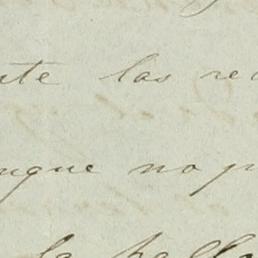 nte las re
unque no p
la bella